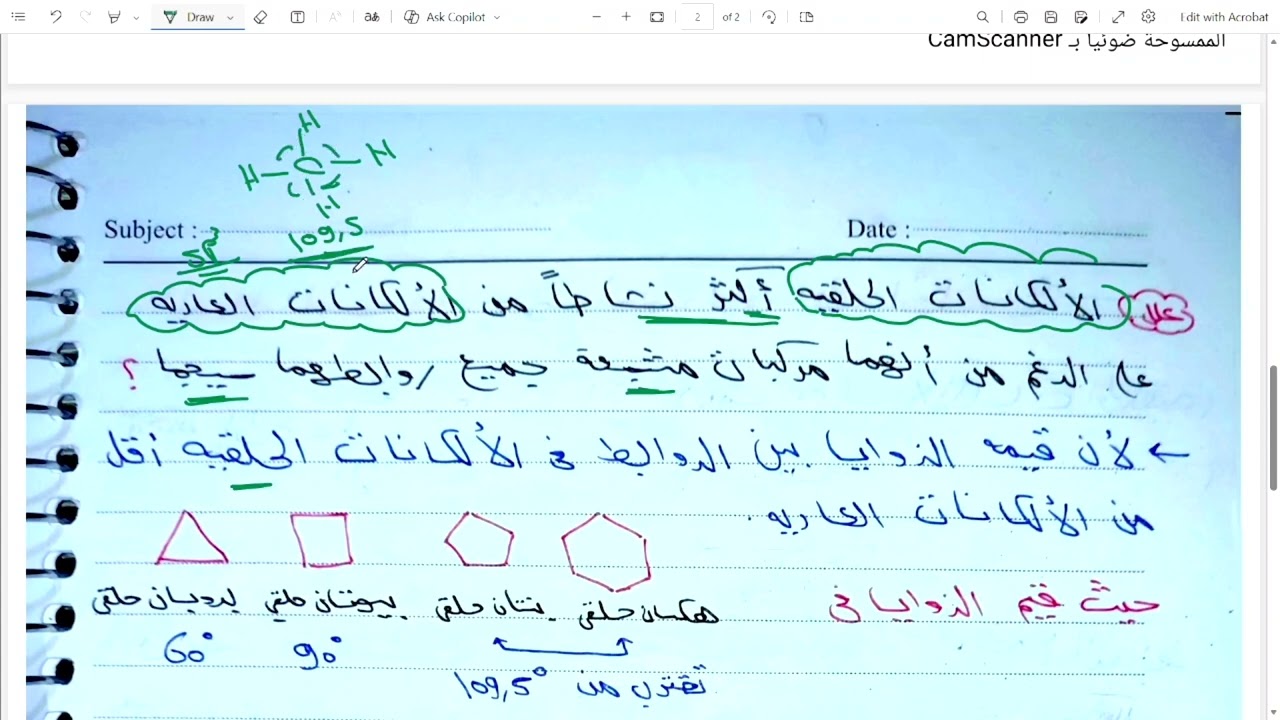 Draw
Ask Copilot
2 of 2
Edit with Acrobat
الممسوحة ضوئيا بـ CamScanner
H
H C H
H
Subject :
109,5
Date :
sp3
علل الألكانات الحلقيه أكثر نشاطاً من الألكانات العاديه
على الرغم من أنهما مركبات مشبعة جميع روابطهما سيجما ؟
← لأن قيمه الزوايا بين الروابط فى الألكانات الحلقيه أقل
من الألكانات العاديه.
حيث قيم الزوايا فى
هكسان حلقى بنتان حلقى بيوتان حلقى بروبان حلقى
90° 60°
تقترب من 109,5°